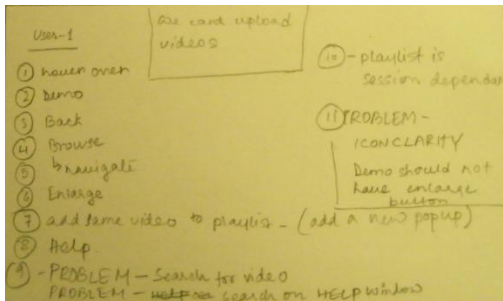 User-1
We card upload
videos
① hover over
② Demo
③ Back
④ Browse
⑤ ↳ navigate
⑥ Enlarge
⑦ add same video to playlist - (add a new popup)
⑧ Help
⑨ - PROBLEM - Search for video
PROBLEM - search on HELP window
⑩ - playlist is
session dependan
⑪ PROBLEM -
ICON CLARITY
Demo should not
have enlarge
button